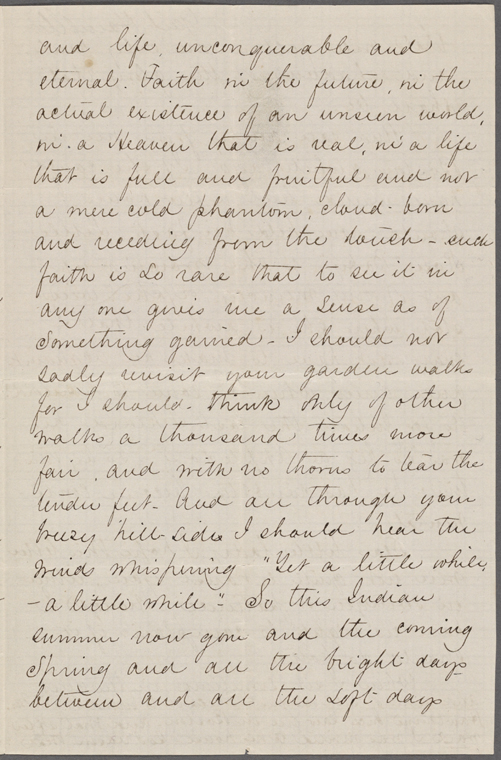 and life, unconquerable and
eternal. Faith in the future, in the
actual existence of an unseen world,
in a Heaven that is real, in a life
that is full and fruitful and not
a mere cold phantom, cloud-born
and receding from the touch - such
faith is so rare that to see it in
any one gives me a sense as of
something gained - I should not
sadly revisit your garden walks
for I should think only of other
walks a thousand times more
fair, and with no thorns to tear the
tender feet. And all through your
breezy hill-sides I should hear the
winds whispering "Yet a little while,
- a little while". So this Indian
summer now gone and the coming
Spring and all the bright days
between and all the soft days